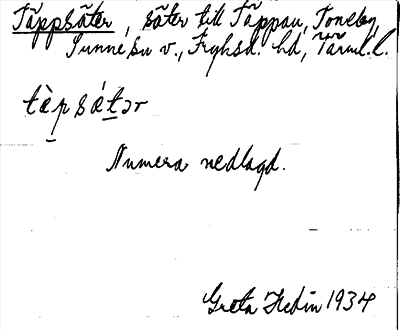 Täppsäter, säter till Täppan, Toneby,
Sunne sn v., Fryksd. hd, Värml. l.
tȁpsǽtər
Numera nedlagd.
Greta Hedin 1934